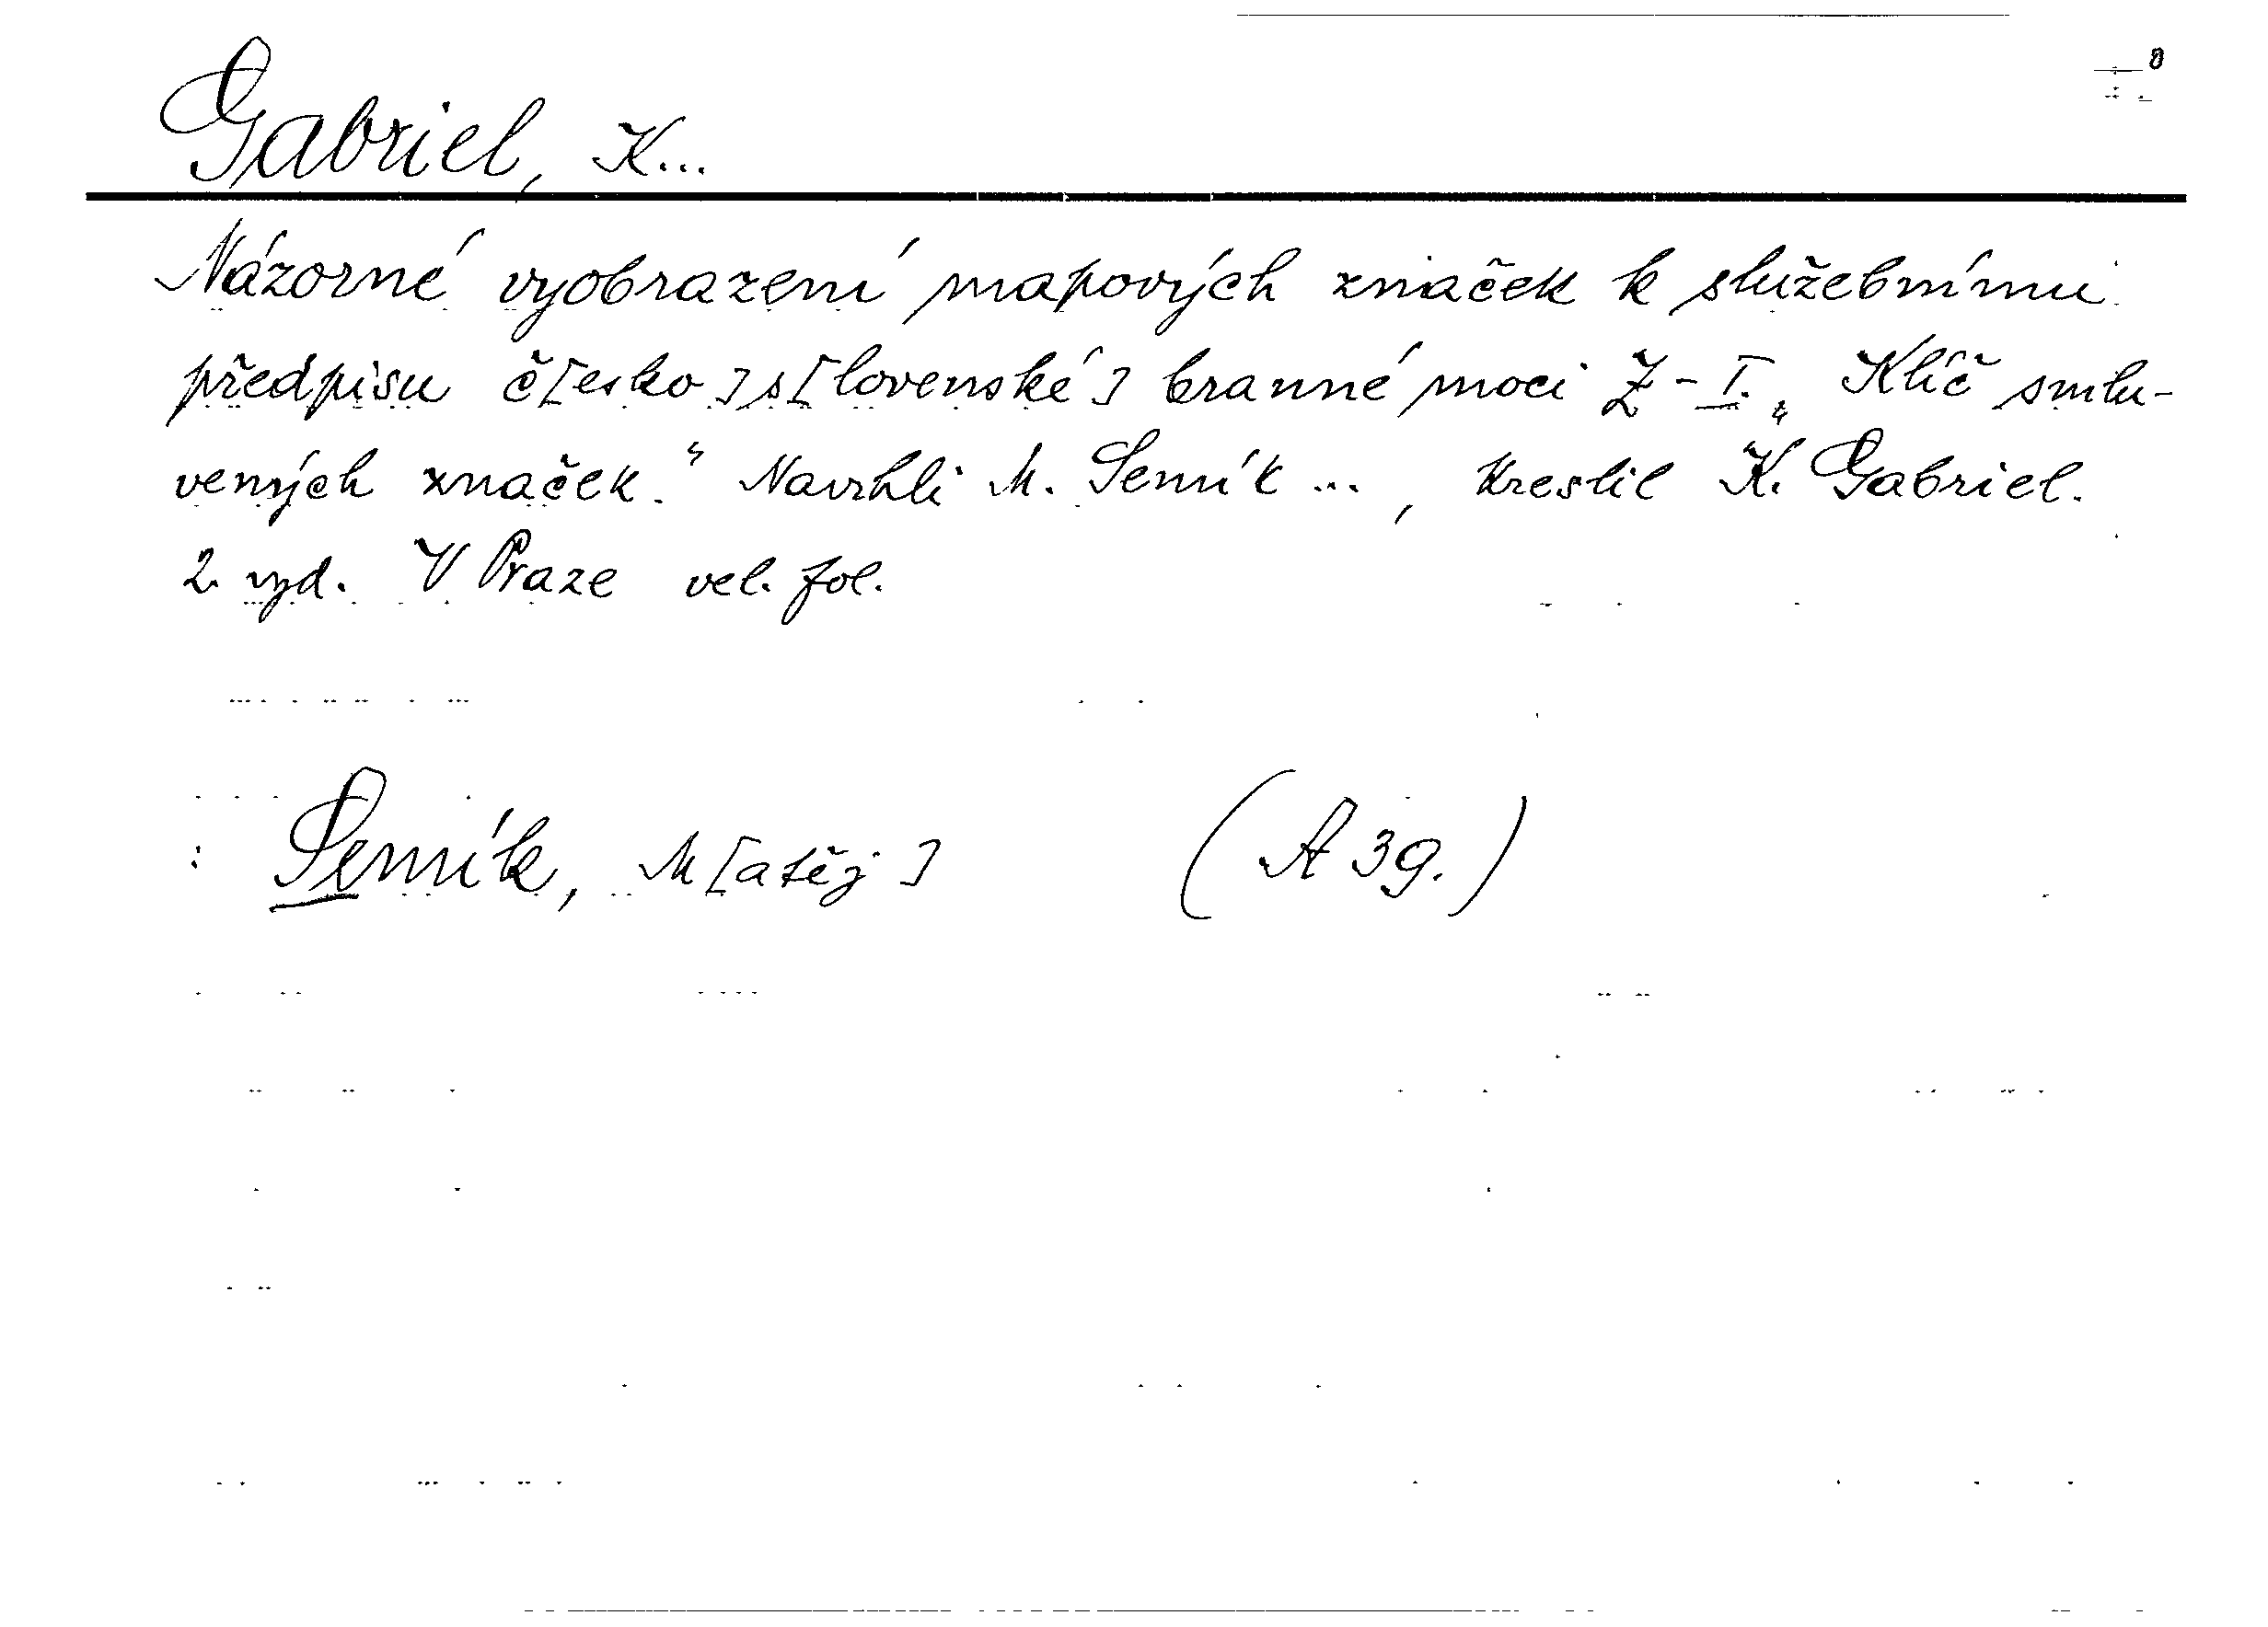 Gabriel, K...
Názorné vyobrazení mapových značek k služebnímu
předpisu č[esko]s[lovenské] branné moci Z-I. „Klíč smlu-
vených značek." Navrhli M. Semík ..., kreslil K. Gabriel.
2. vyd. V Praze vel. fol.
Semík, M[atěj] (A 39.)